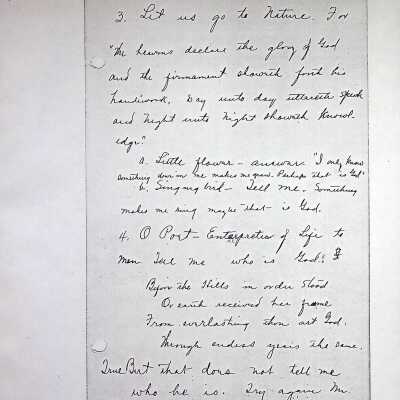 3. Let us go to Nature. For
"The heavens declare the glory of God
and the firmament showeth forth his
handiwork. Day unto day uttereth speech
and night unto night showeth knowl-
edge."
a. Little flower - answer "I only know
something down in me makes me grow. Perhaps that is God"
b. Singing bird - Tell me. Something
makes me sing maybe - that - is God.
4. O Poet - Enterpretier of Life to
men Tell me who is God?
Before the Hills in order stood
Or earth received her frame
From everlasting thou art God.
Through endless years the same.
True But that does not tell me
who he is. Try again Mr.